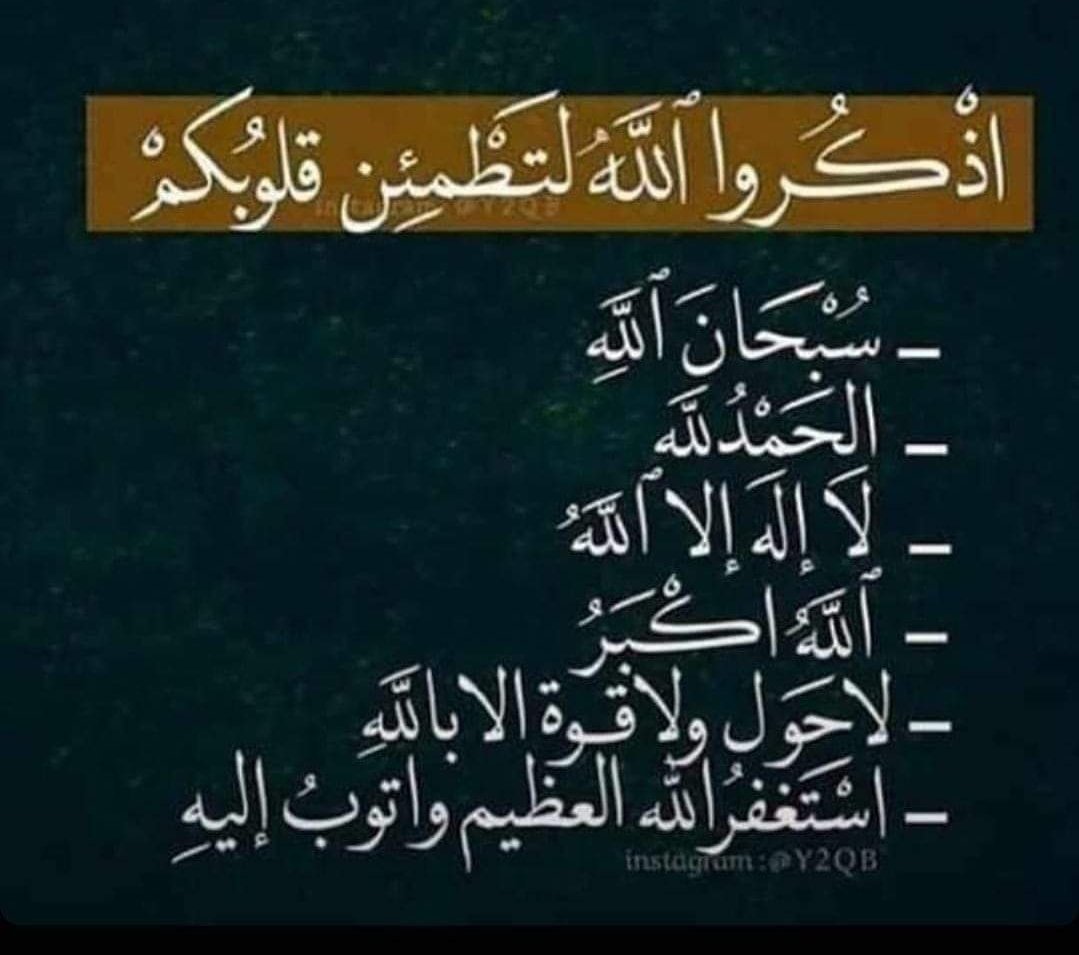 اذْكُروا ٱللَّهُ لتَطْمئِن قلوُبكمْ
– سُبْحَانَ ٱللَّهِ
– الحَمْدُلَلَّه
– لَا إِلَه إِلا ٱللَّهُ
– ٱللَّهُ اكْبَرُ
– لاحَول ولا قوة الا باللَّهِ
– اسْتَغفرُالله العظيم واتوبُ إليهِ
instagram:@Y2QB